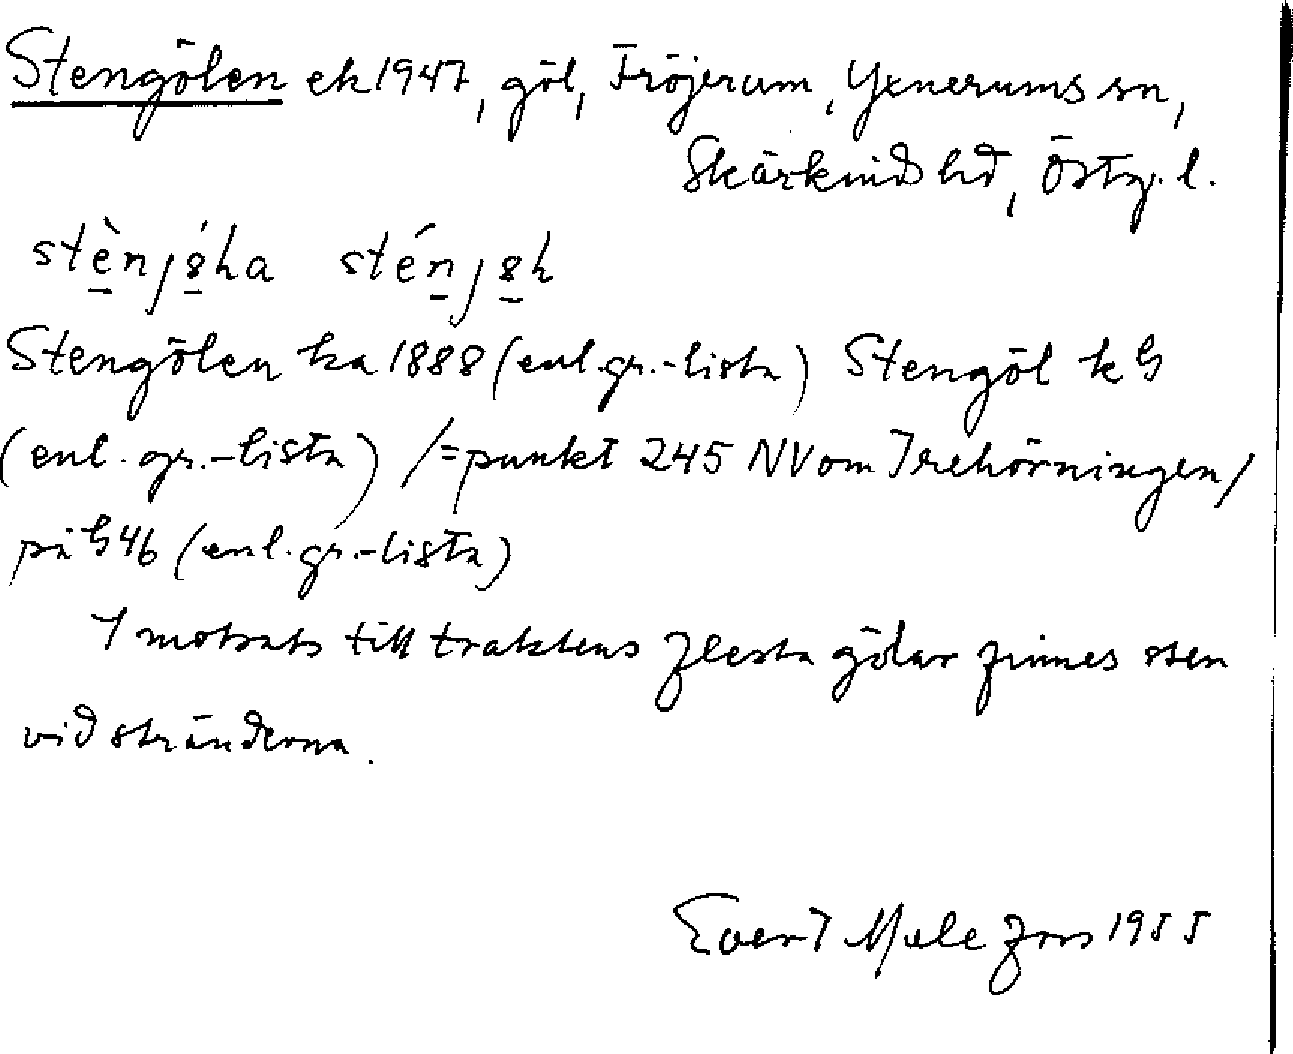 Stengölen ek 1947, göl, Fröjerum, Yxnerums sn,
Skärkinds hd, Östg. l.
Stengölen ka 1888 (enl. gr.-lista) Stengöl k S
(enl. gr.-lista) /=punkt 245 NV om Trehörningen/
på S 46 (enl. gr.-lista)
I motsats till traktens flesta gölar finnes sten
vid stränderna.
Evert Melefors 1955